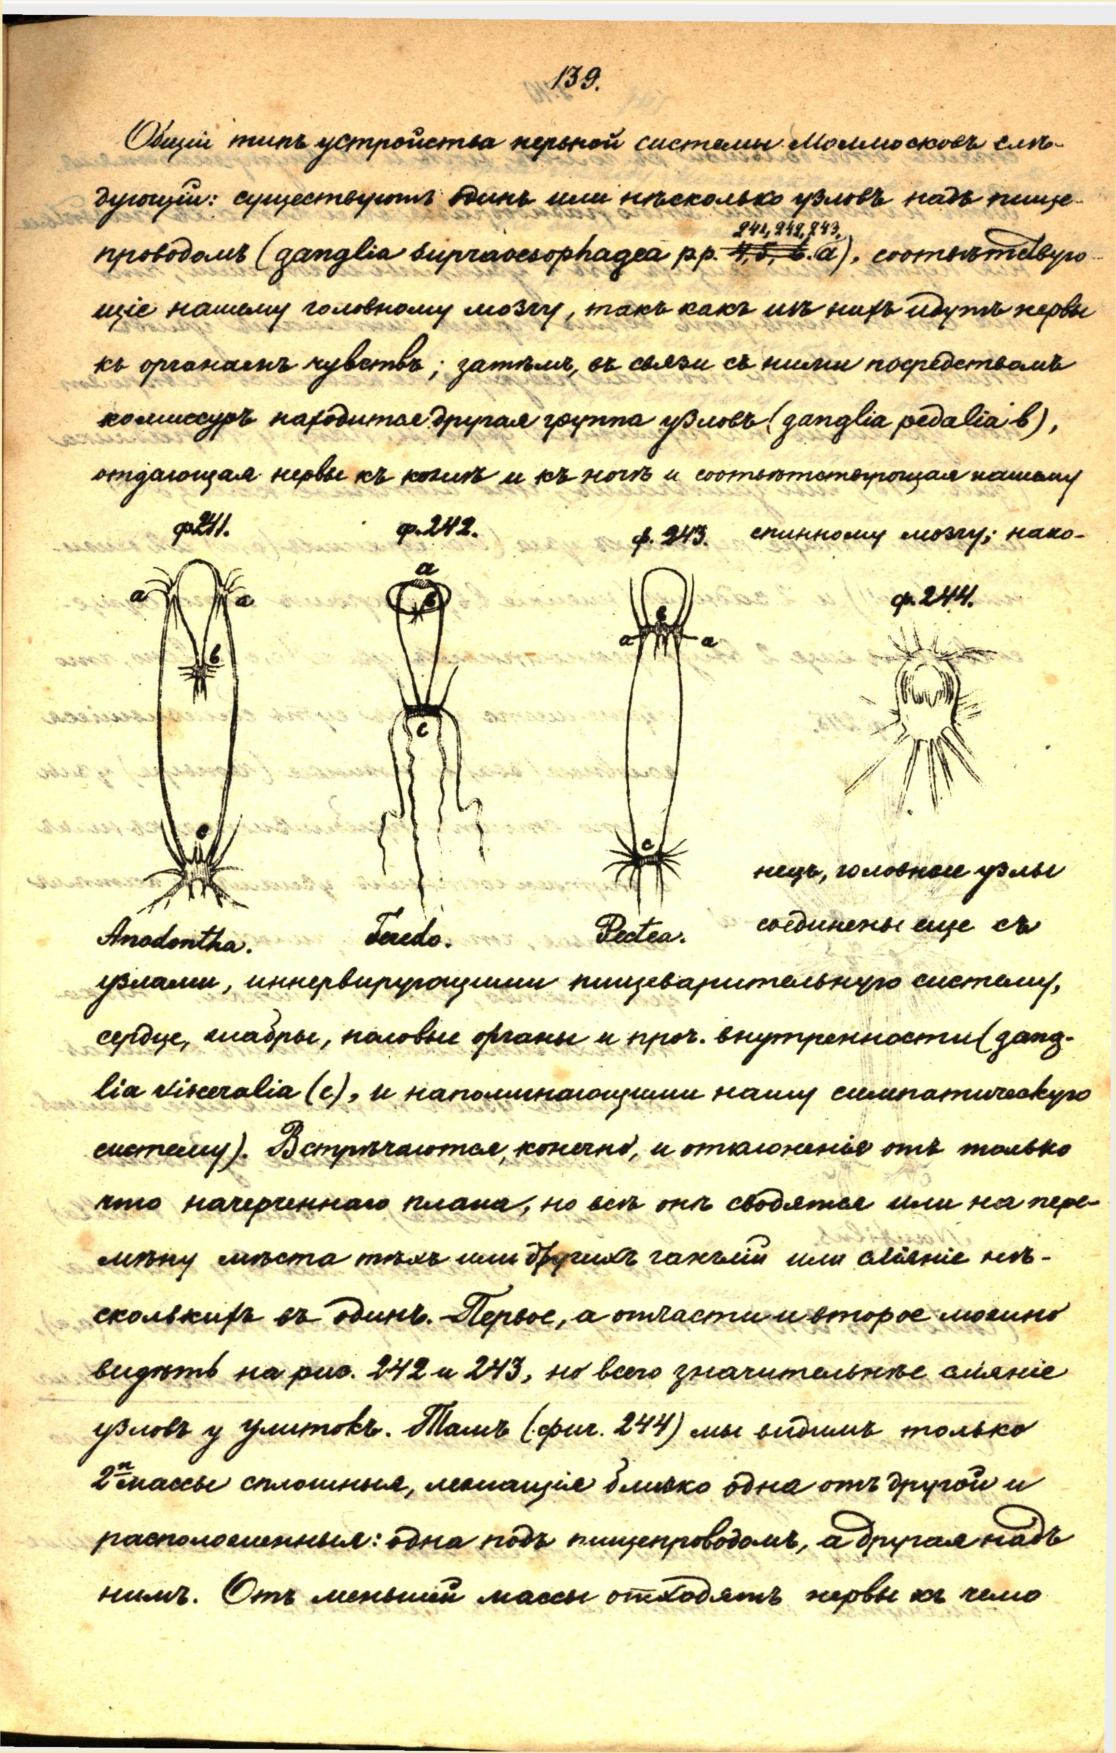 139.
Общій типъ устройства нервной системы Моллюсковъ слѣ-
дующій: существуютъ одинъ или нѣсколько узловъ надъ пище-
241, 242, 243,
проводомъ (ganglia supraoesophagea рр. 4, 5, 6. a), соотвѣтствую-
щіе нашему головному мозгу, такъ какъ изъ нихъ идутъ нервы
къ органамъ чувствъ; затѣмъ, въ связи съ ними посредствомъ
комиссуръ находится другая группа узловъ (ganglia pedalia b),
отдающая нервы къ кожѣ и къ ногѣ и соотвѣтствующая нашему
спинному мозгу; нако-
ф. 241.
ф. 242.
ф. 243.
ф. 244.
a a b c
a b c
b a a c
нецъ, головные узлы
соединены еще съ
Anodontha.
Teredo.
Pectea.
узлами, иннервирующими пищеварительную систему,
сердце, жабры, половые органы и проч. внутренности (gang-
lia visceralia (c), и напоминающими нашу симпатическую
систему). Встрѣчаются, конечно, и отклоненія отъ только
что начерченнаго плана, но всѣ онѣ сводятся или на пере-
мѣну мѣста тѣхъ или другихъ ганглій или сліяніе нѣ-
сколькихъ въ одинъ. Первое, а отчасти и второе можно
видѣть на рис. 242 и 243, но всего значительнѣе сліяніе
узловъ у улитокъ. Тамъ (фиг. 244) мы видимъ только
2 массы сплошныя, лежащія близко одна отъ другой и
расположенныя: одна подъ пищепроводомъ, а другая надъ
нимъ. Отъ меньшей массы отходятъ нервы къ чело